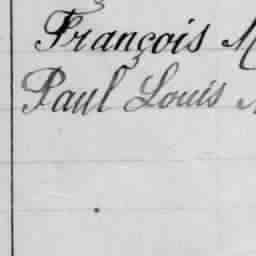 François M
Paul Louis